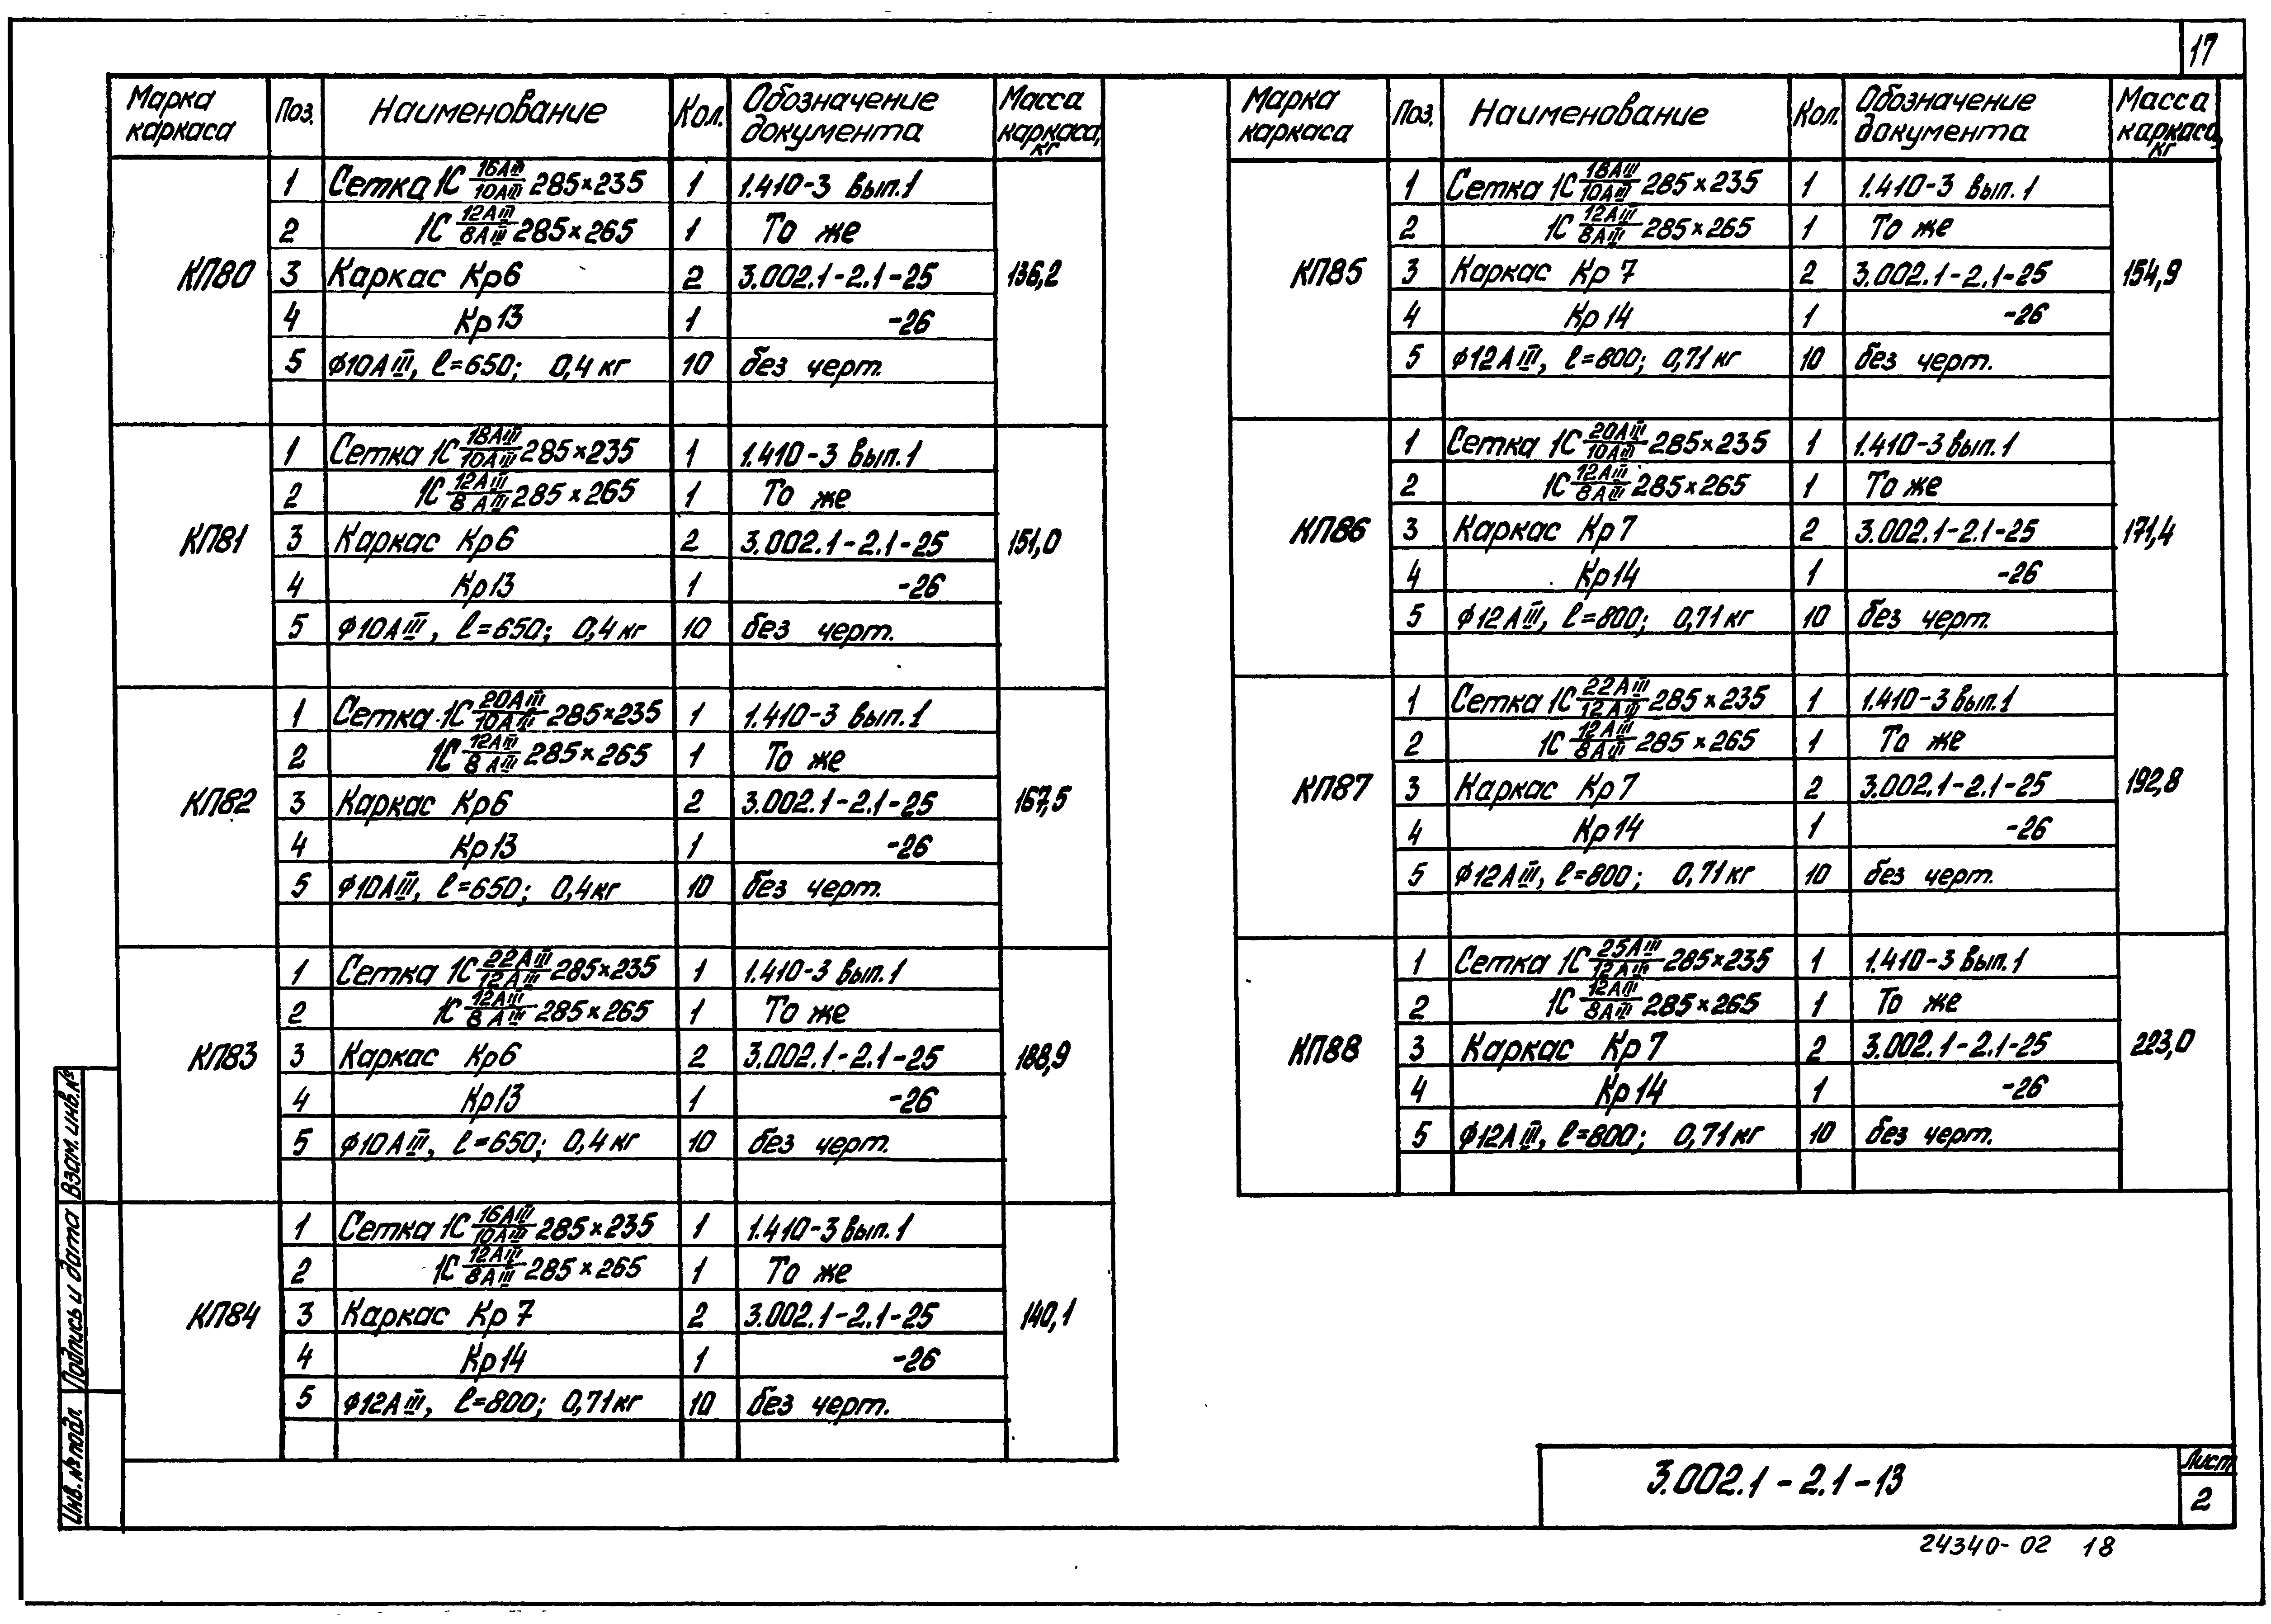 17
Марка каркаса Поз. Наименование Кол. Обозначение документа Масса каркаса, кг
КП80 136,2
1 Сетка 1С 16АIII/10АIII 285×235 1 1.410-3 вып.1
2 1С 12АIII/8АIII 285×265 1 То же
3 Каркас Кр6 2 3.002.1-2.1-25
4 Кр13 1 -26
5 ф10АIII, ℓ=650; 0,4 кг 10 без черт.
КП81 151,0
1 Сетка 1С 18АIII/10АIII 285×235 1 1.410-3 вып.1
2 1С 12АIII/8АIII 285×265 1 То же
3 Каркас Кр6 2 3.002.1-2.1-25
4 Кр13 1 -26
5 ф10АIII, ℓ=650; 0,4 кг 10 без черт.
КП82 167,5
1 Сетка 1С 20АIII/10АIII 285×235 1 1.410-3 вып.1
2 1С 12АIII/8АIII 285×265 1 То же
3 Каркас Кр6 2 3.002.1-2.1-25
4 Кр13 1 -26
5 ф10АIII, ℓ=650; 0,4кг 10 без черт.
КП83 188,9
1 Сетка 1С 22АIII/12АIII 285×235 1 1.410-3 вып.1
2 1С 12АIII/8АIII 285×265 1 То же
3 Каркас Кр6 2 3.002.1-2.1-25
4 Кр13 1 -26
5 ф10АIII, ℓ=650; 0,4 кг 10 без черт.
КП84 140,1
1 Сетка 1С 16АIII/10АIII 285×235 1 1.410-3 вып.1
2 1С 12АIII/8АIII 285×265 1 То же
3 Каркас Кр7 2 3.002.1-2.1-25
4 Кр14 1 -26
5 ф12АIII, ℓ=800; 0,71кг 10 без черт.
Марка каркаса Поз. Наименование Кол. Обозначение документа Масса каркаса, кг
КП85 154,9
1 Сетка 1С 18АIII/10АIII 285×235 1 1.410-3 вып.1
2 1С 12АIII/8АIII 285×265 1 То же
3 Каркас Кр7 2 3.002.1-2.1-25
4 Кр14 1 -26
5 ф12АIII, ℓ=800; 0,71кг 10 без черт.
КП86 171,4
1 Сетка 1С 20АIII/10АIII 285×235 1 1.410-3 вып.1
2 1С 12АIII/8АIII 285×265 1 То же
3 Каркас Кр7 2 3.002.1-2.1-25
4 Кр14 1 -26
5 ф12АIII, ℓ=800; 0,71кг 10 без черт.
КП87 192,8
1 Сетка 1С 22АIII/12АIII 285×235 1 1.410-3 вып.1
2 1С 12АIII/8АIII 285×265 1 То же
3 Каркас Кр7 2 3.002.1-2.1-25
4 Кр14 1 -26
5 ф12АIII, ℓ=800; 0,71кг 10 без черт.
КП88 223,0
1 Сетка 1С 25АIII/12АIII 285×235 1 1.410-3 вып.1
2 1С 12АIII/8АIII 285×265 1 То же
3 Каркас Кр7 2 3.002.1-2.1-25
4 Кр14 1 -26
5 ф12АIII, ℓ=800; 0,71кг 10 без черт.
Взам. инв.№
Подпись и дата
Инв. № подл.
3.002.1-2.1-13
Лист
2
24340-02 18